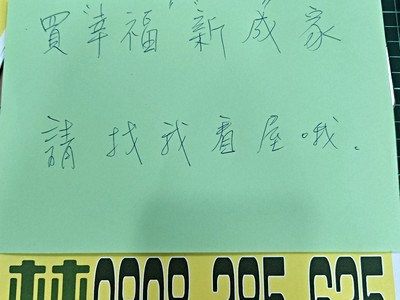 買"幸福"新成家
請找我看屋哦.
林0808-285-625